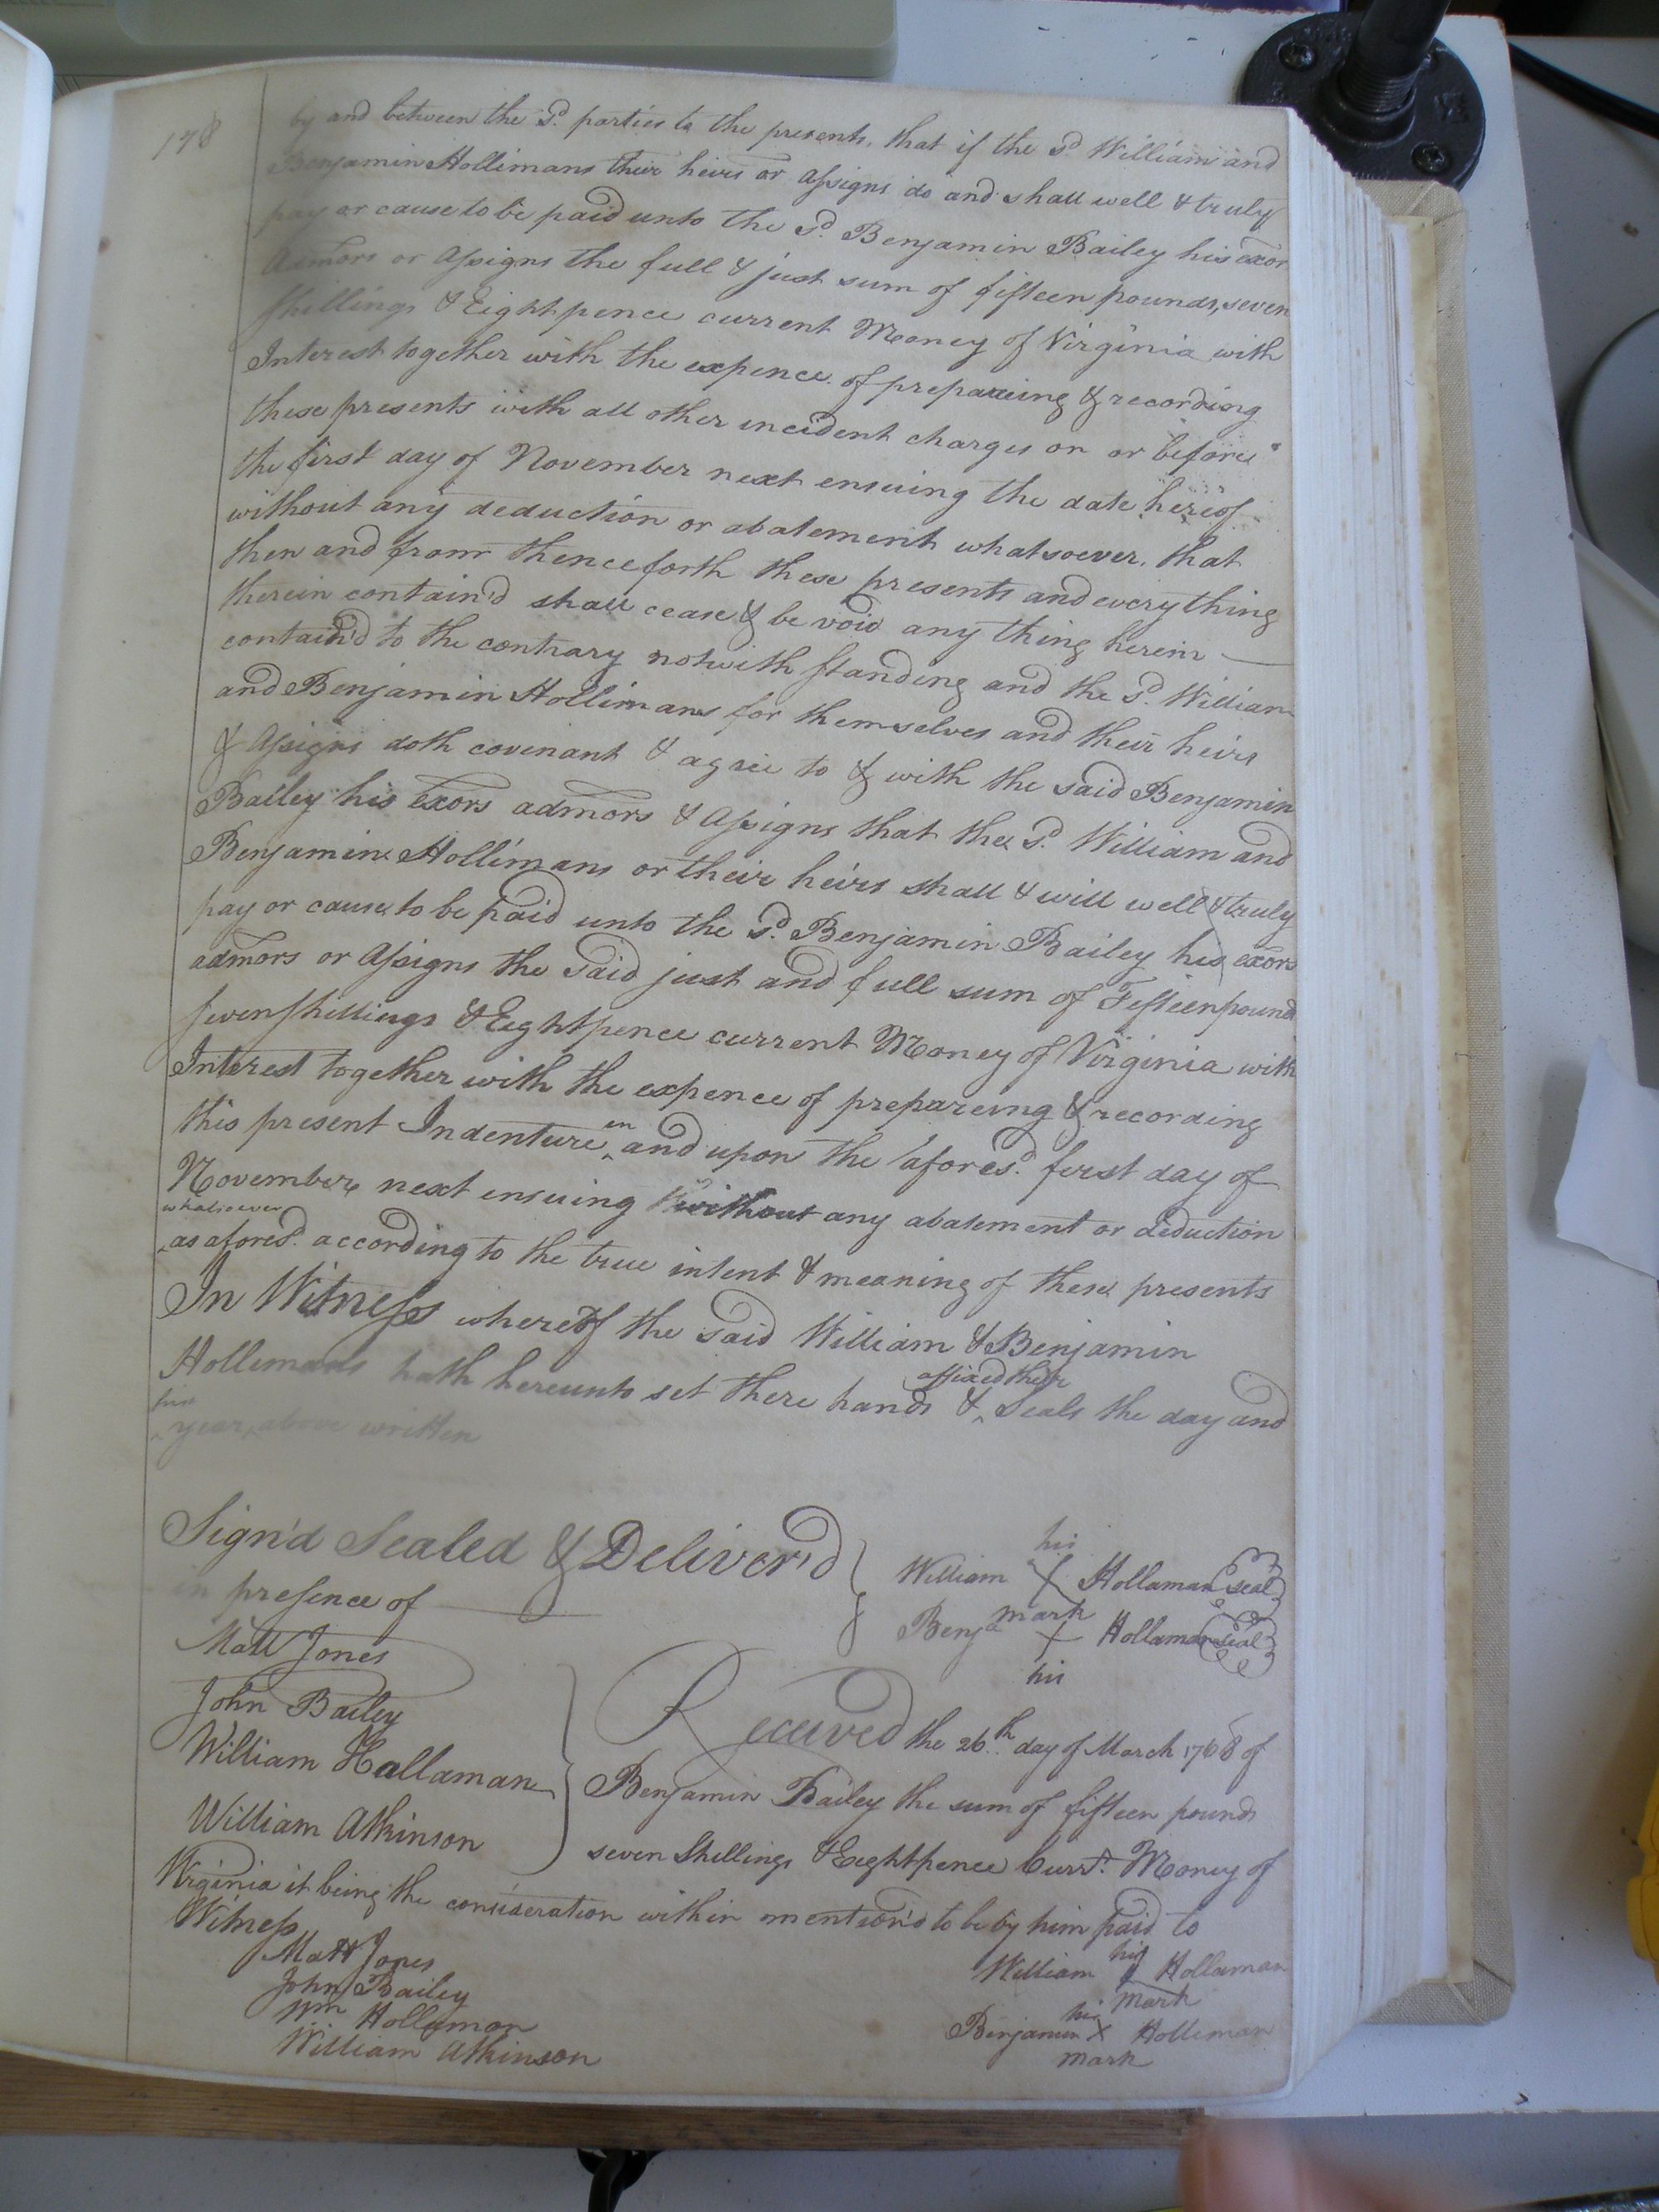 178
by and between the sd. parties to the presents, that if the sd. William and
Benjamin Hollimans their heirs or assigns do and shall well & truly
pay or cause to be paid unto the sd. Benjamin Bailey his exor
admors or assigns the full & just sum of fifteen pounds, seven
shillings & Eightpence current Money of Virginia with
Interest together with the expence of prepareing & recording
these presents with all other incident charges on or before
the first day of November next ensuing the date hereof
without any deduction or abatement whatsoever, that
then and from thenceforth these presents and everything
therein contain'd shall cease & be void any thing herein
contain'd to the contrary notwithstanding and the sd. William
and Benjamin Hollimans for themselves and their heirs
& assigns doth covenant & agree to & with the said Benjamin
Bailey his exors admors & assigns that the sd. William and
Benjamin Hollimans or their heirs shall & will well & truly
pay or cause to be paid unto the sd. Benjamin Bailey his exors
admors or assigns the said just and full sum of Fifteen pounds
seven shillings & Eightpence current Money of Virginia with
Interest together with the expence of prepareing & recording
this present Indenture in and upon the aforesd. first day of
November next ensuing without any abatement or deduction
whatsoever
as aforesd. according to the true intent & meaning of these presents
In Witness whereof the said William & Benjamin
Hollimans hath hereunto set there hands & affixed their Seals the day and
year above written
Sign'd Sealed & Deliver'd
in presence of
Matt Jones
John Bailey
William Hallaman
William Atkinson
his
William X Hollaman seal
mark
Benja X Hollaman seal
his
Received the 26th. day of March 1768 of
Benjamin Bailey the sum of fifteen pounds
seven Shillings & Eightpence Currt. Money of
Virginia it being the consideration within mention'd to be by him paid to
Witness
Matt Jones
John Bailey
Wm Hollaman
William Atkinson
his
William X Hollaman
mark
his
Benjamin X Holliman
mark